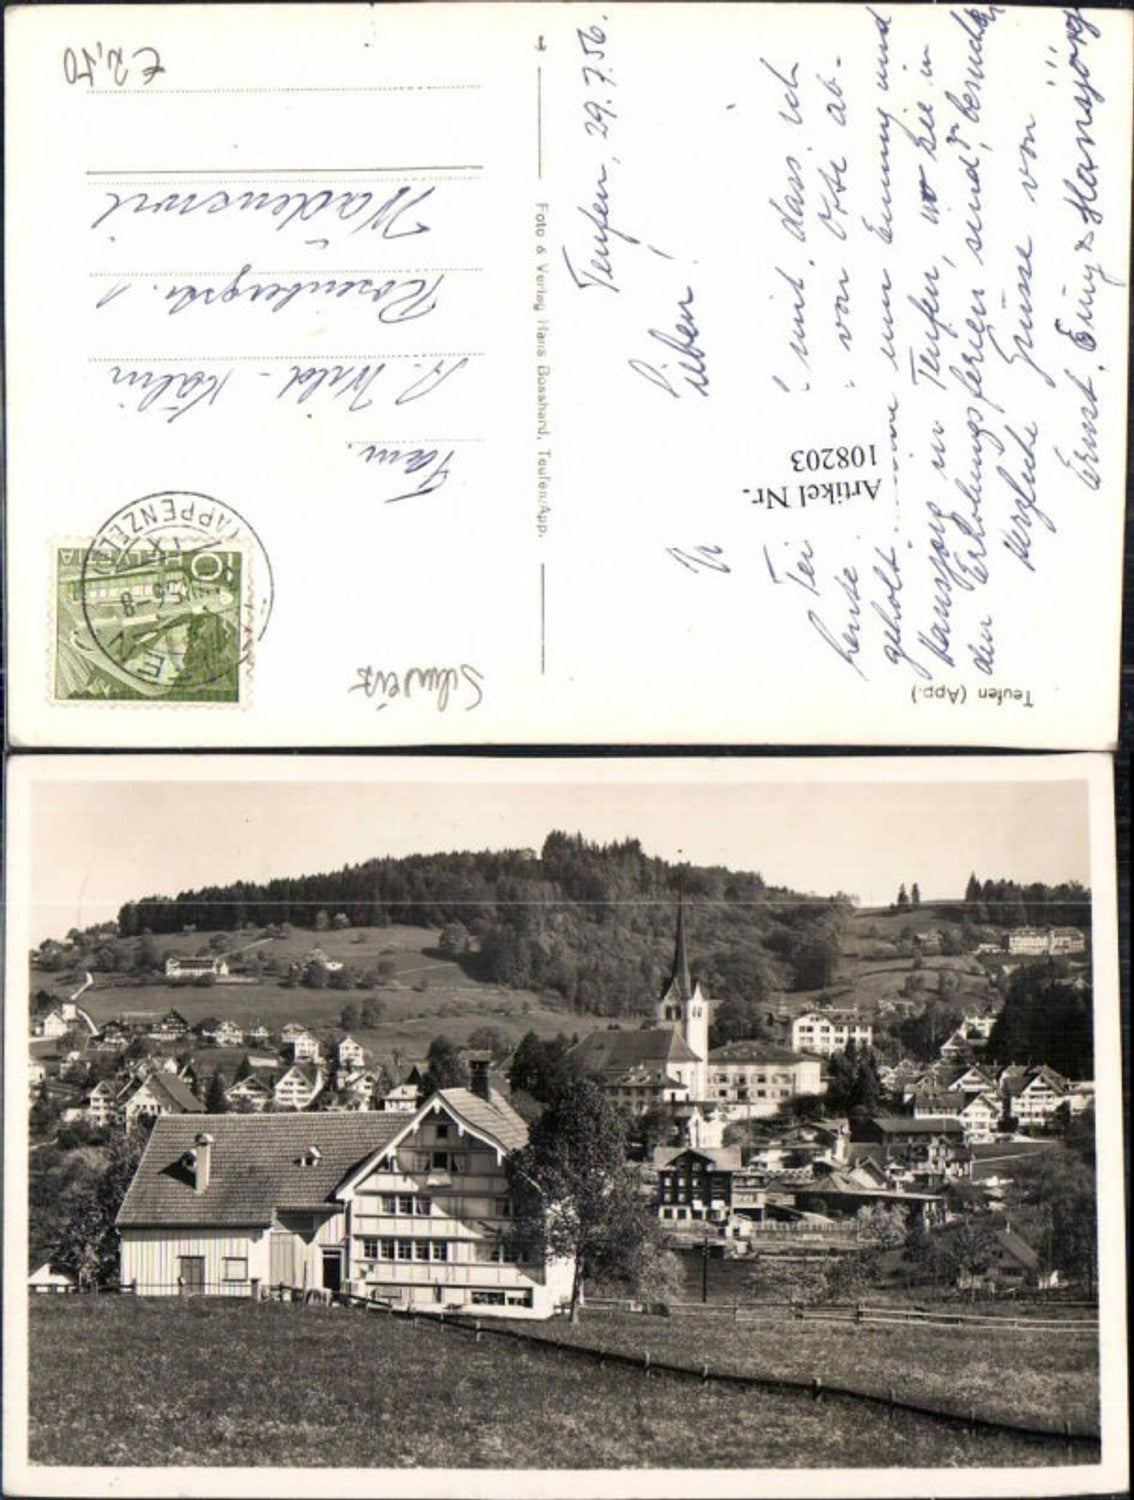 Teufen (App.)
Teufen, 29.7.56.
Lieben!
Tei mit, dass ich
heute von Oste ab-
geholt um Emmy und
Hansjörg in Teufen, wo sie in
den Erholungsferien sind, besuchen
Herzliche Grüsse von
Ernst, Emmy & Hansjörg
Artikel Nr.
108203
Foto & Verlag Hans Bosshard, Teufen/App.
Schweiz
10 HELVETIA
(APPENZELL)
Fam.
R. Wild-Kälin
Rosenbergstr. 1
Wädenswil
€ 2,50